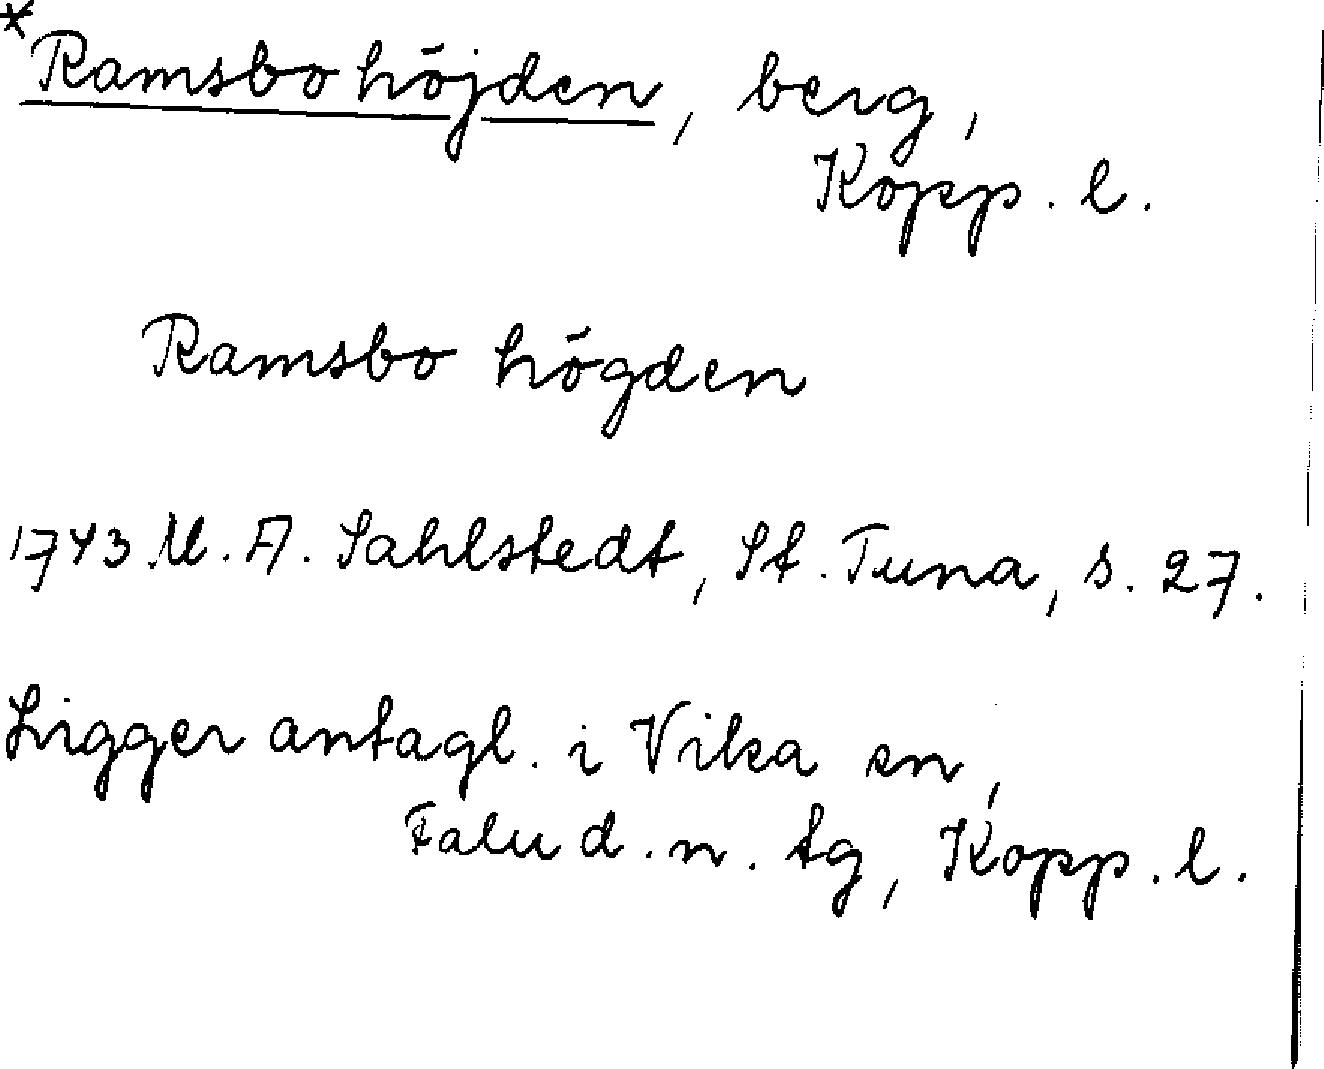 *Ramsbohöjden, berg,
Kopp. l.
Ramsbo högden
1743 M. A. Sahlstedt, St. Tuna, s. 27.
Ligger antagl. i Vika sn,
Falu d. n. tg, Kopp. l.